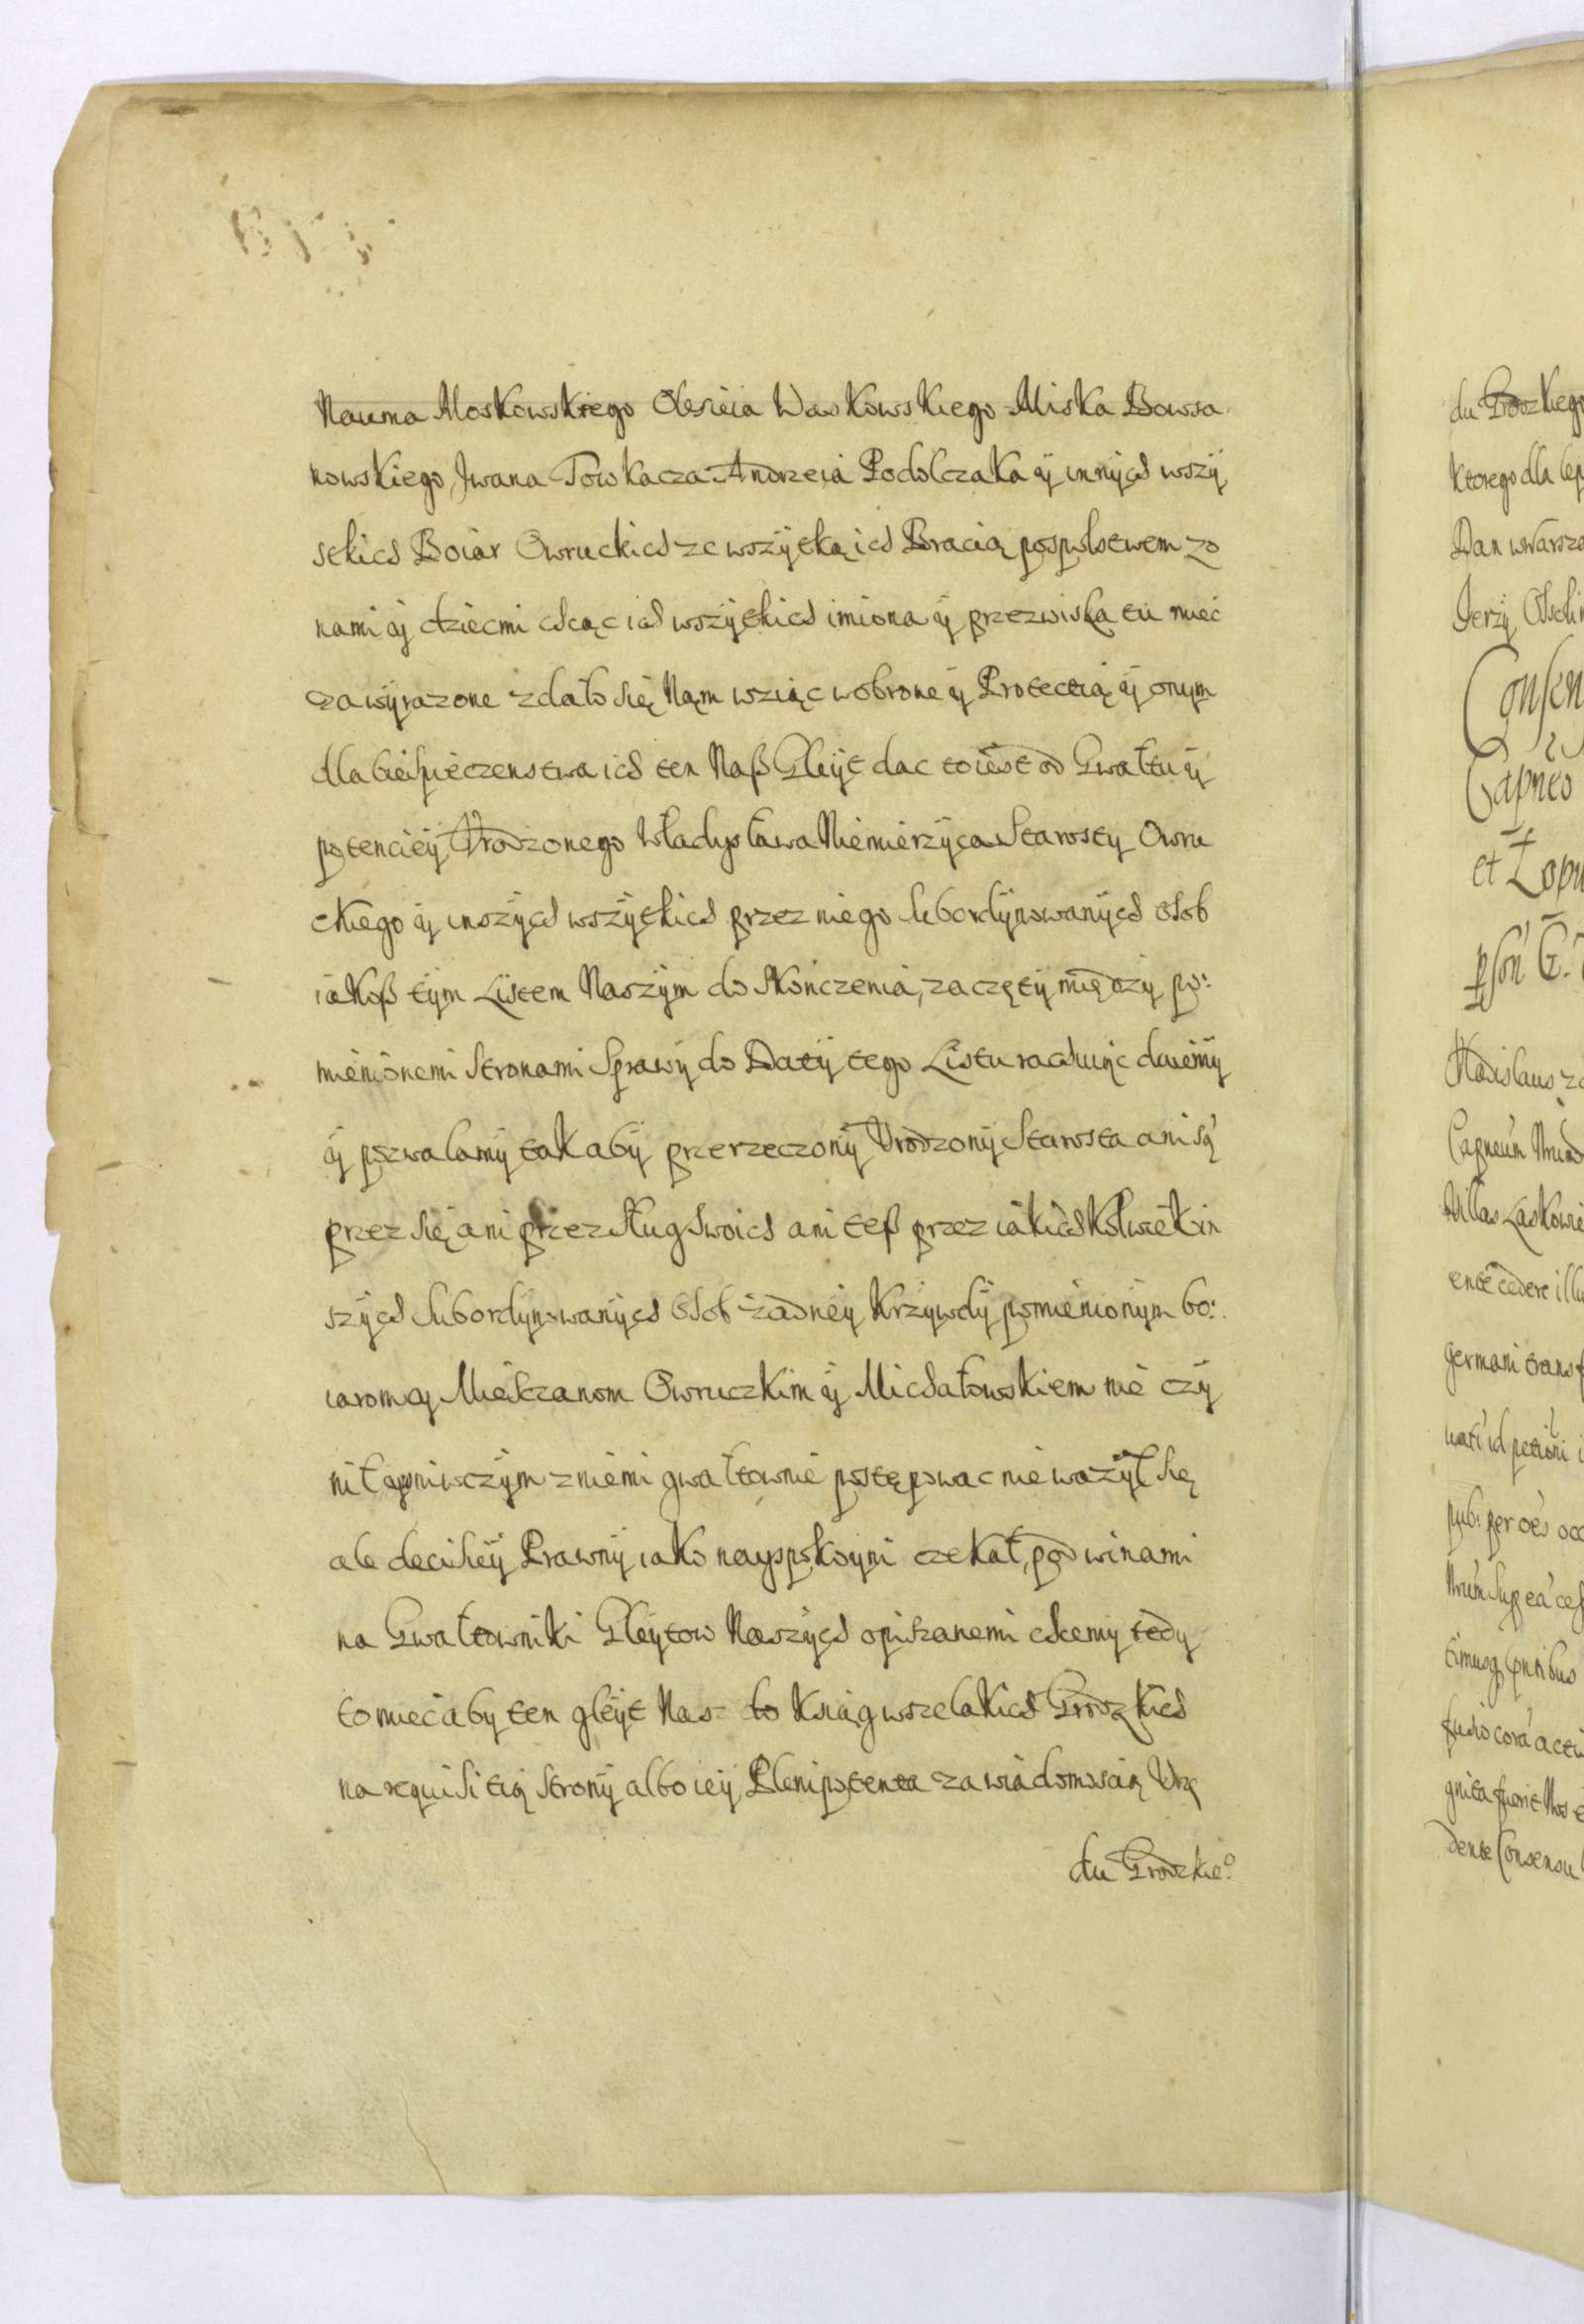 Nauma Moskowskiego Olexieia Waskowskiego Miska Bowsa
nowskiego, Jwana Towkacza Andrzeia Podolczaka ÿ innÿch wszÿ
stkich Boiar Owruckich ze wszÿtką ich Bracią pospolstwem żo
nami ÿ dziecmi chcąc ich wszÿtkich imiona ÿ przezwiska tu miec
za wÿrazone zdało się Nąm wziąc w obronę ÿ Protectią ÿ onym
dla biespieczenstwa ich ten Naß Gleÿt dac to iest od Gwałtu ÿ
potenciéÿ Vrodzonego Władysława Niemierzÿca Starostÿ Owru
ckiego ÿ inszÿch wszÿtkich przez niego subordÿnowanÿch osob
iakoß tÿm Listem Naszÿm do skonczenia, zaczętÿ międzÿ po:
mienionemi Stronami Sprawÿ do Datÿ tego Listu rachuiąc daiemÿ
ÿ pozwalamÿ tak abÿ przerzeczonÿ Vrodzonÿ Starosta ani są
przez się ani przez sług swoich ani teß przez iakichkolwiek in
szÿch subordÿnowanÿch osob żadnéÿ krzÿwdÿ pomienionÿm bo:
iarom ÿ Mieszczanom Owruczkim ÿ Michałowskiem nie czÿ
nił ÿ wniwczÿm z niemi gwałtownie postępowac nie ważÿł się
ale deciséÿ Prawnÿ iako nayspokoyni czekał, pod winami
na Gwałtowniki Gleÿtow Naszÿch opisanemi chcemy tedy
to miec aby ten gleÿt Nasz do Ksiąg wszelakich Grodzkich
na requisitią Stronÿ albo ieÿ Plenipotenta za wiadomoscią Vrzę
du Grodzkieo

du Grodzkiego
ktorego dla lep
Dan w Warsza
Jerzÿ Ossoli
Consen
Capneo
et

Villas Laskowi

germani transf

dente Consensu